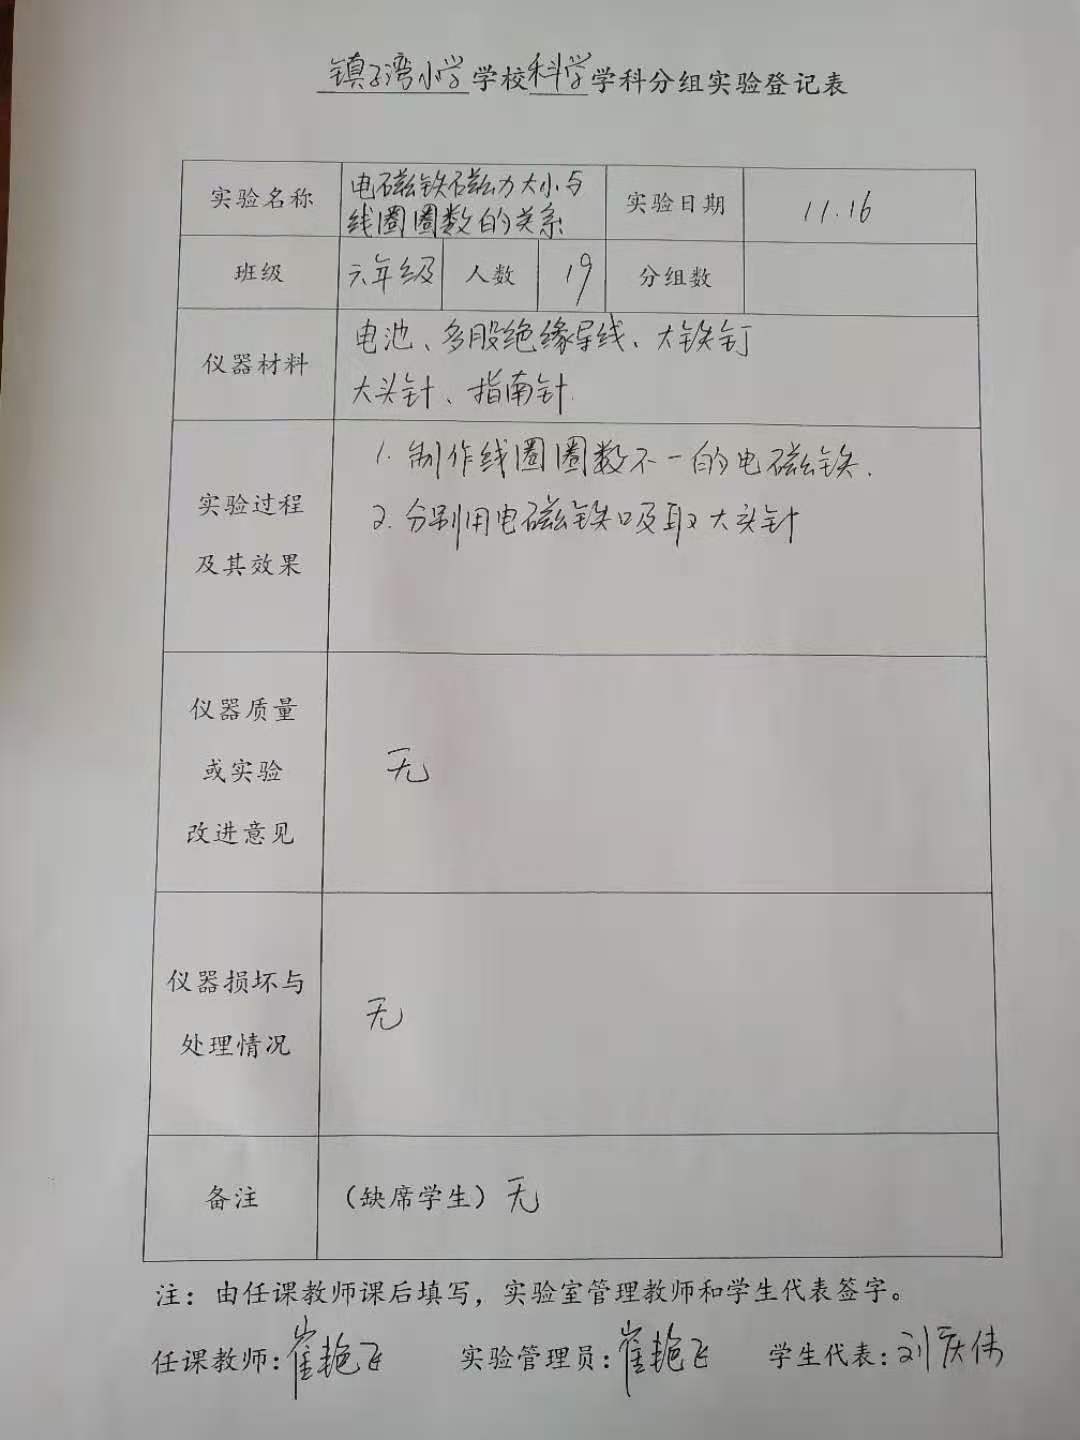 镇子湾小学学校科学学科分组实验登记表
实验名称 电磁铁磁力大小与
线圈圈数的关系 实验日期 11.16
班级 六年级 人数 19 分组数
仪器材料 电池、多股绝缘导线、大铁钉
大头针、指南针
实验过程
及其效果
1.制作线圈圈数不一的电磁铁.
2.分别用电磁铁吸取大头针
仪器质量
或实验
改进意见
无
仪器损坏与
处理情况
无
备注 （缺席学生）无
注：由任课教师课后填写，实验室管理教师和学生代表签字。
任课教师:崔艳飞 实验管理员:崔艳飞 学生代表:刘庆伟